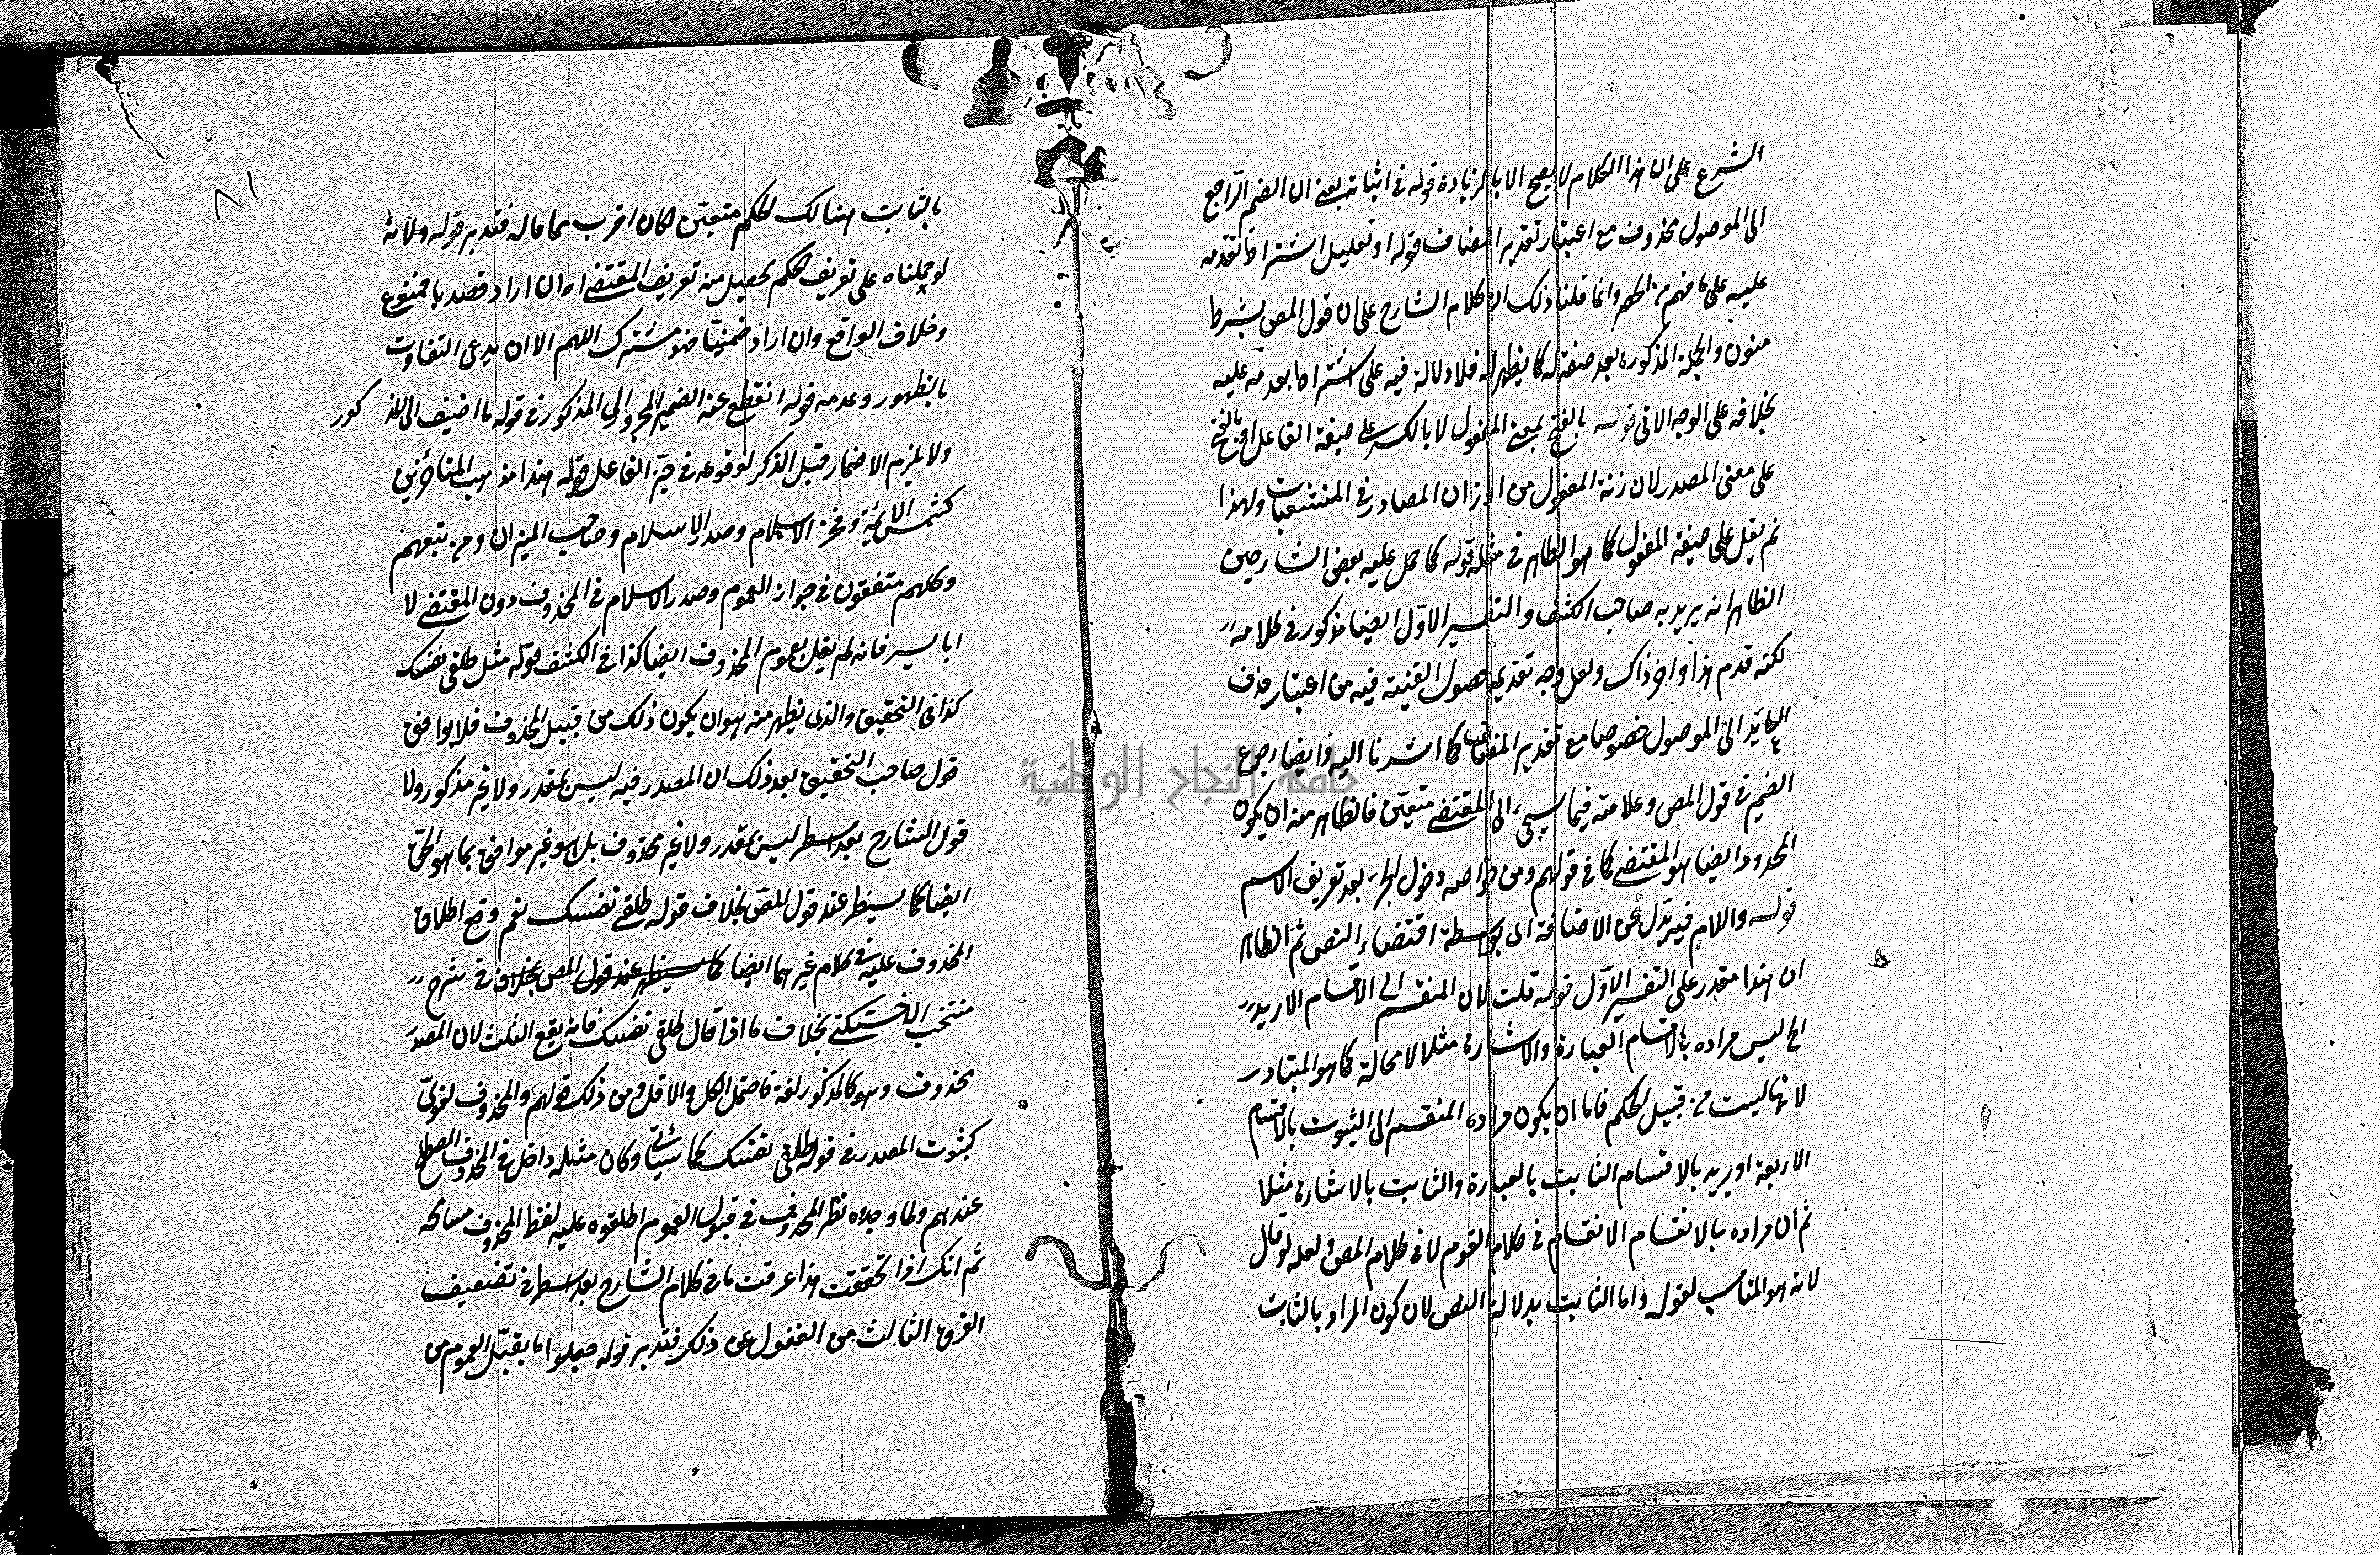 الشرع على ان هذا الكلام لا يصح الا بالزيادة قوله في اثباته يعني ان الضمير الراجع
الى الموصول محذوف مع اعتبار تقدير المضاف قوله او تعليل اشتراط تقدمه
عليه على ما فهم من الحصر وانما قلنا ذلك لان كلام الشارح على ان قول المص بشرط
منون والجملة المذكورة بعد صفة له كما يظهر فلا دلالة فيه على اشتراط بعدمه عليه
بخلافه على الوجه الآتي قوله بالفتح بمعنى المفعول لا بالكسر على صيغة الفاعل او بالفتح
على معنى المصدر لان زنة المفعول من اوزان المصادر في المنشعبات ولهذا
لم يقل على صيغة المفعول كما هو الظاهر في مثله قوله كما حمل عليه بعض الشارحين
الظاهر انه يريد به صاحب الكشف والتفسير الاول ايضا مذكور في كلامه
لكنه قدم هذا واخر ذاك ولعل وجه تقديمه حصول الغنية فيه من اعتبار حذف
العائد الى الموصول خصوصا مع تقدير المضاف كما اشرنا اليه وايضا رجوع
الضمير في قول المص وعلامته فيما سيجيء الى المقتضى متعين فالظاهر منه ان يكون
المحدود ايضا هو المقتضى كما في قولهم ومن خواصه دخول الجر بعد تعريف الاسم
قوله واللام فيه بدل عن الاضافة اي بواسطة اقتضاء النص ثم الظاهر
ان هذا مقدر على التفسير الاول قوله قلت لان المنقسم الى الاقسام الاربعة
الخ ليس مراده بالاقسام العبارة والاشارة مثلا لا محالة كما هو المتبادر
لانها ليست من قبيل الحكم فاما ان يكون مراده المنقسم الى الثبوت بالاقسام
الاربعة او يريد بالاقسام الثابت بالعبارة والثابت بالاشارة مثلا
ثم ان مراده بالانقسام الانقسام في كلام القوم لا في كلام المص ولعله لو قال
لانه هو المناسب لقوله واما الثابت بدلالة النص لان كون المراد بالثابت
٨١
بالثابت هنالك الحكم متعين لكان اقرب مما قاله فتدبر قوله ولانه
لو حملناه على تعريف الحكم يحصل منه تعريف المقتضى اه ان اراد قصديا فممنوع
وخلاف الواقع وان اراد ضمنيا فهو مشترك اللهم الا ان يدعى التفاوت
بالظهور وعدمه قوله انقطع عنه الضمير المجرور الى المذكور في قوله ما اضيف الى المذكور
ولا يلزم الاضمار قبل الذكر لوقوعه في حيز الفاعل قوله هذا مذهب المتأخرين
كشمس الائمة وفخر الاسلام وصدر الاسلام وصاحب الميزان ومن تبعهم
وكلهم متفقون في جواز العموم وصدر الاسلام في المحذوف دون المقتضى لا
ابا يسر فانه لم يقل بعموم المحذوف ايضا كذا في الكشف قوله مثل طلقي نفسك
كذا في التحقيق والذي يظهر منه هو ان يكون ذلك من قبيل المحذوف فلا يوافق
قول صاحب التحقيق بعد ذلك ان المصدر فيه ليس بمقدر ولا غير مذكور ولا
قول الشارح بعد اسطر ليس بمقدر ولا غير محذوف بل هو غير موافق بما هو الحق
ايضا كما سيظهر عند قول المص بخلاف قوله طلقي نفسك نعم وقع اطلاق
المحذوف عليه في كلام غيرهما ايضا كما سيظهر عند قول المص بخلاف في شرح
منتخب الاخسيكتي بخلاف ما اذا قال طلقي نفسك فانه يقع الثلث لان المصدر
محذوف وهو كالمذكور لغة فاحتمل الكل والاقل ومن ذلك قولهم والمحذوف لغوي
كثبوت المصدر في قوله طلقي نفسك كما سيأتي وكان مثله داخل في المحذوف المصطلح
عندهم ولما وجدوه نظير المحذوف في قبول العموم اطلقوه عليه لفظ المحذوف مسامحة
ثم انك اذا تحققت هذا عرفت ما في كلام الشارح بعد اسطر في تضعيف
الفرق الثالث من الغفول عن ذلك فتدبر قوله جعلوا ما يقبل العموم من